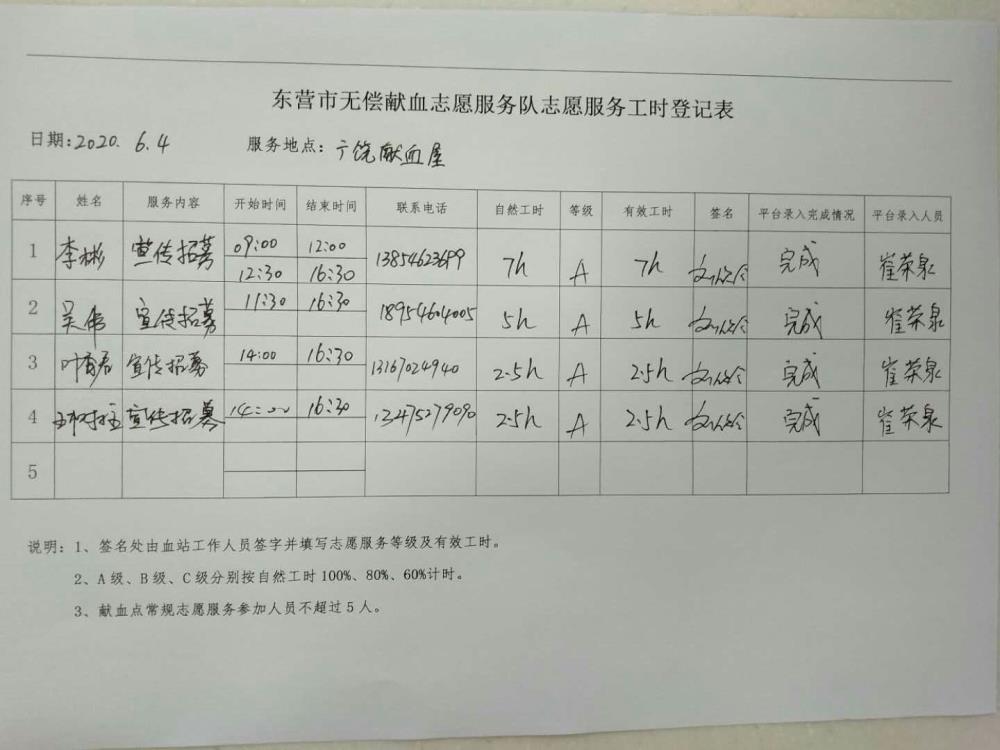 东营市无偿献血志愿服务队志愿服务工时登记表
日期:2020. 6.4 服务地点：广饶献血屋
序号 姓名 服务内容 开始时间 结束时间 联系电话 自然工时 等级 有效工时 签名 平台录入完成情况 平台录入人员
1 李彬 宣传招募 09:00 12:00 13854623699 7h A 7h 完成 崔荣泉
12:30 16:30
2 吴伟 宣传招募 11:30 16:30 18954604005 5h A 5h 完成 崔荣泉
3 宣传招募 14:00 16:30 13167024940 2.5h A 2.5h 完成 崔荣泉
4 宣传招募 14:00 16:30 13475279090 2.5h A 2.5h 完成 崔荣泉
5
说明：1、签名处由血站工作人员签字并填写志愿服务等级及有效工时。
2、A级、B级、C级分别按自然工时100%、80%、60%计时。
3、献血点常规志愿服务参加人员不超过5人。